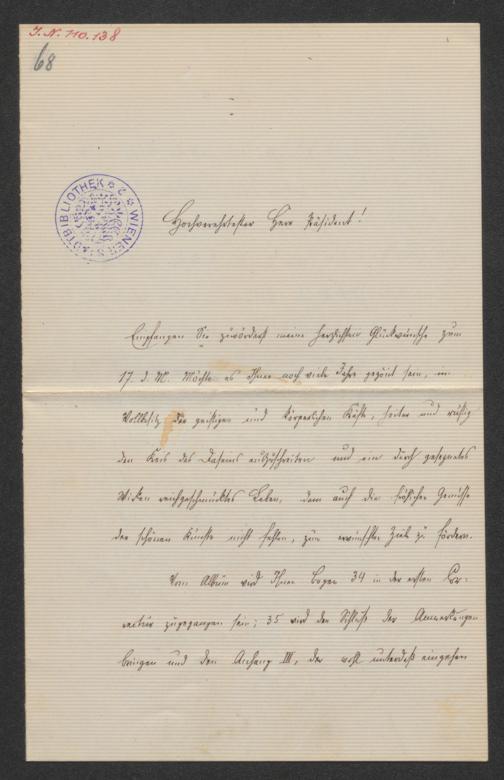 J. N. 110.138
68
WIENER STADTBIBLIOTHEK
Hochverehrtester Herr Präsident!
Empfangen Sie zuvörderst meine herzlichsten Glückwünsche zum
17. d. M. Möchte es Ihnen noch viele Jahre gegönt sein, im
Vollbesitz der geistigen und körperlichen Kräfte, heiter und rüstig
den Kreis des Daseins auszuschreiten und ein durch gesegnetes
Wirken reichgeschmücktes Leben, dem auch die fröhlichen Genüsse
der schönen Künste nicht fehlen, zum erwünschten Ziele zu fördern.
Vom Album wird Ihnen Bogen 34 in der ersten Cor-
rectur zugegangen sein; 35 wird den Schluß der Anmerkungen
bringen und den Anhang III, der wohl unterdeß eingehen